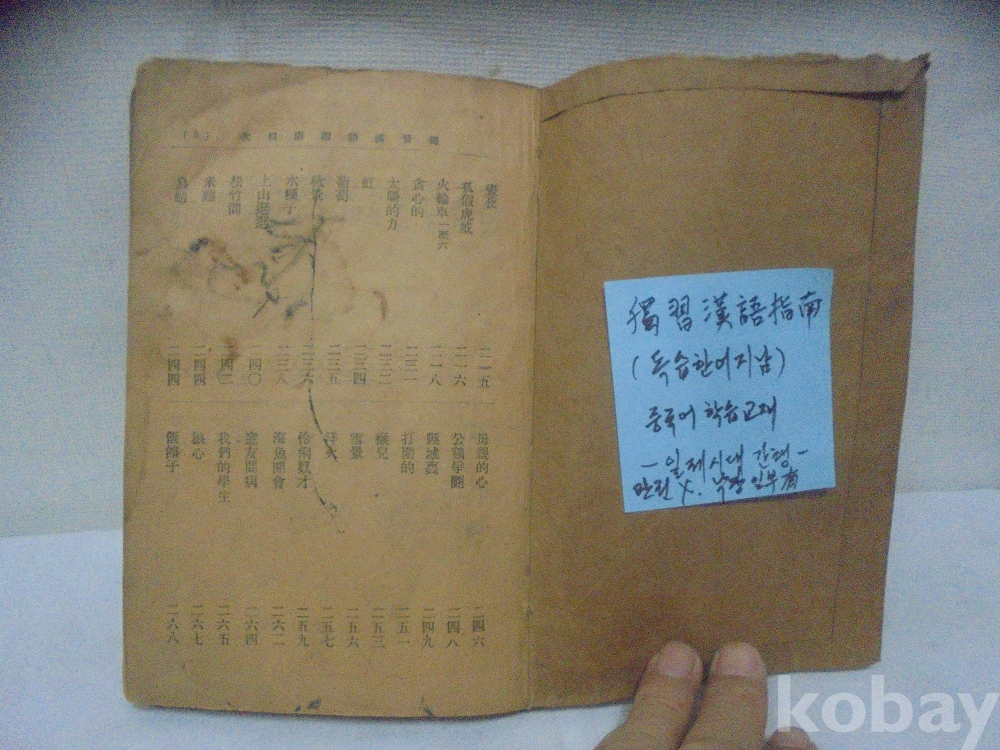 獨習漢語指南目次 (3)
晝夜 二一五
狐假虎威 二一六
火輪車一至六 二一八
貪心的 二三一
太陽的力 二三二
虹 二三四
葡萄 二三五
二三六
二三八
上山逛逛 二四〇
松竹問
二四四
二四四
母親的心 二四六
公鷄爭鬪 二四八
縣城裏 二四九
打圍的 二五一
猴兒 二五三
雪景 二五六
洋火 二五七
伶俐奴才 二五九
海魚開會 二六二
窓友問病 二六四
我們的學生 二六五
狠心 二六七
飯館子 二六八
獨習漢語指南
(독습한어지남)
중국어 학습교재
- 일제시대 간행 -
판권 X. 낙장일부有
kobay